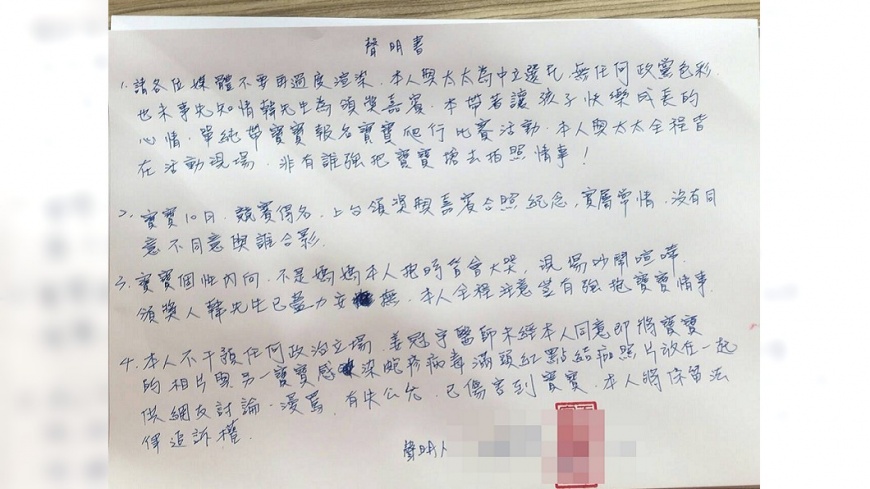 聲明書
1. 請各位媒體不要再過度渲染.本人與太太為中立選民.無任何政黨色彩.
也未事先知情韓先生為頒獎嘉賓.本帶著讓孩子快樂成長的
心情.單純帶寶寶報名寶寶爬行比賽活動.本人與太太全程皆
在活動現場.非有誰強把寶寶搶去拍照情事!
2. 寶寶10日.競賽得名.上台領獎與嘉賓合照紀念,實屬常情.沒有同
意不同意與誰合影.
3. 寶寶個性內向.不是媽媽本人抱時皆會大哭,現場吵鬧喧嘩.
頒獎人韓先生已盡力安撫.本人全程注意豈有強抱寶寶情事.
4. 本人不干預任何政治立場.姜冠宇醫師未經本人同意即將寶寶
的相片與另一寶寶感染皰疹病毒滿頭紅點結痂照片放在一起
供網友討論.漫罵.有失公允.已傷害到寶寶.本人將保留法
律追訴權.
聲明人